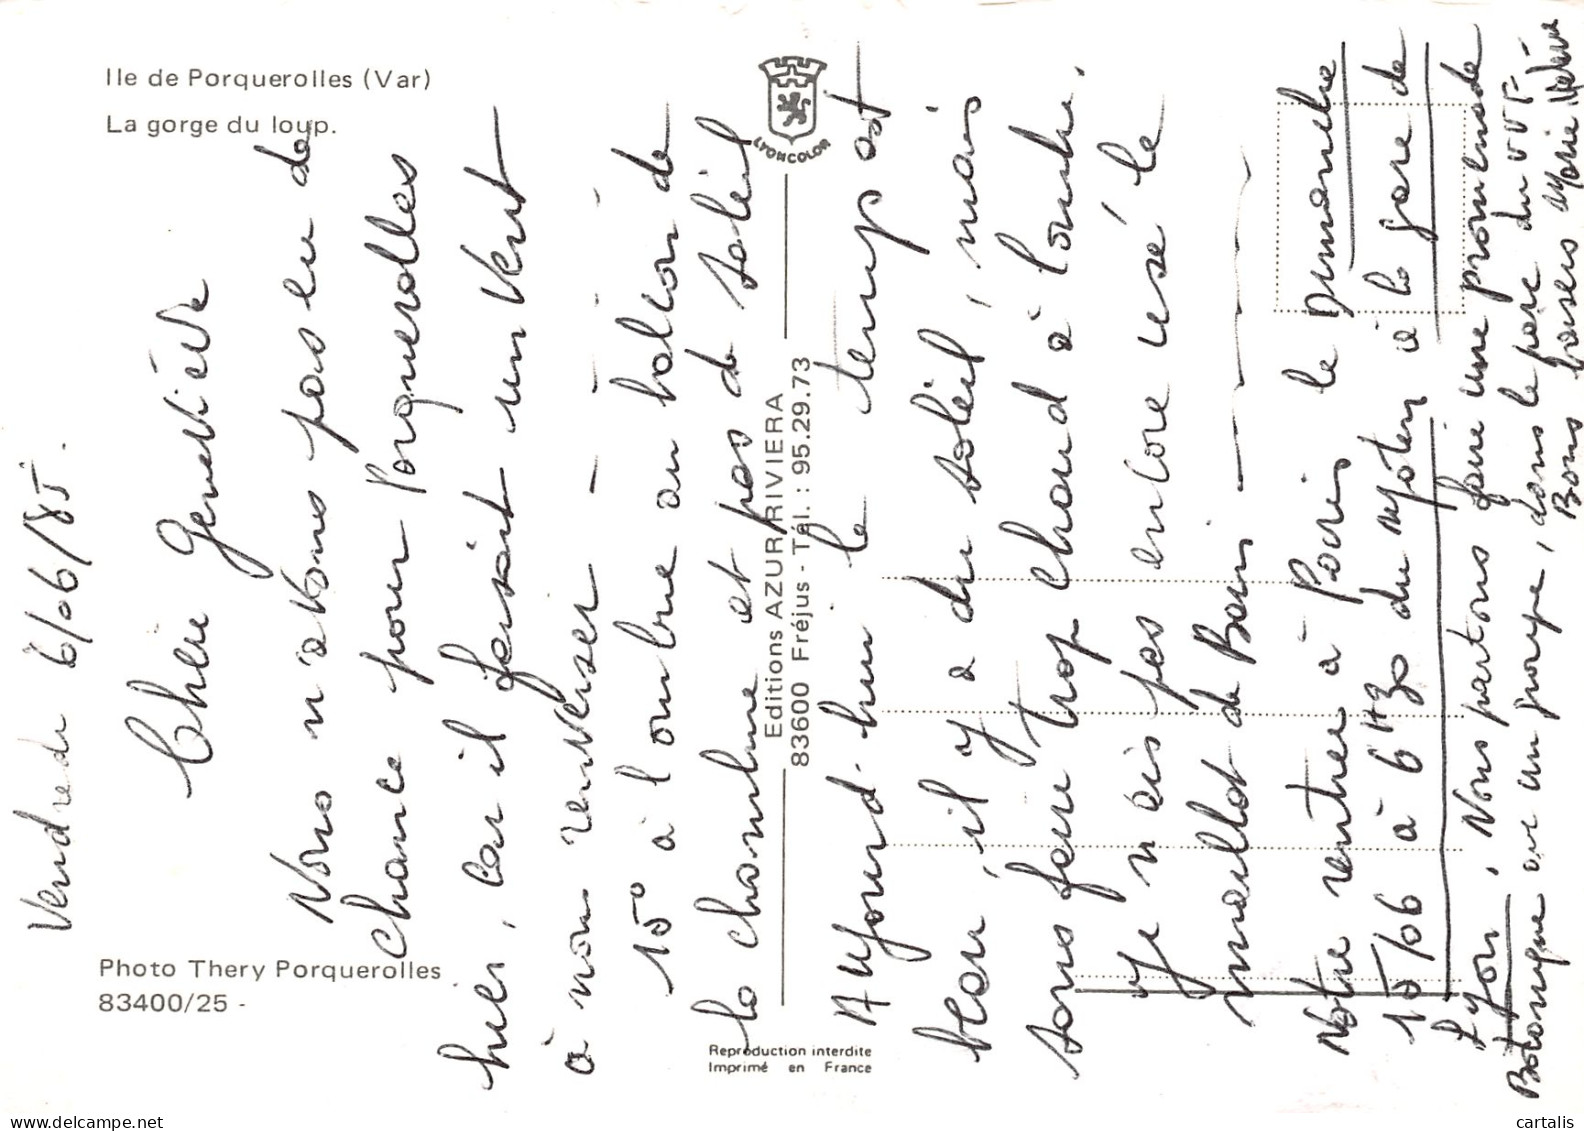 Ile de Porquerolles (Var)
La gorge du loup.
Photo Thery Porquerolles
83400/25 -
LYONCOLOR
Editions AZUR RIVIERA
83600 Fréjus - Tél. : 95.29.73
Reproduction interdite
Imprimé en France
Vendredi 6/06/85.
Chère Geneviève
Nous n'avons pas eu de
chance pour Porquerolles
hier, car il fesait un vent
à nous renverser -
15° à l'ombre au balcon de
la chambre et pas de soleil
Aujourd-hui le temps est
beau, il y a du soleil, mais
sans faire trop chaud à l'ombre.
Je n'ais pas encore usé le
maillot de Bain
Notre rentrée à Paris le Dimanche
15/06 à 6H30 du Matin à la gare de
Lyon. Nous partons faire une promenade
Botanique avec un groupe, dans le parc du
Bons baisers Marie